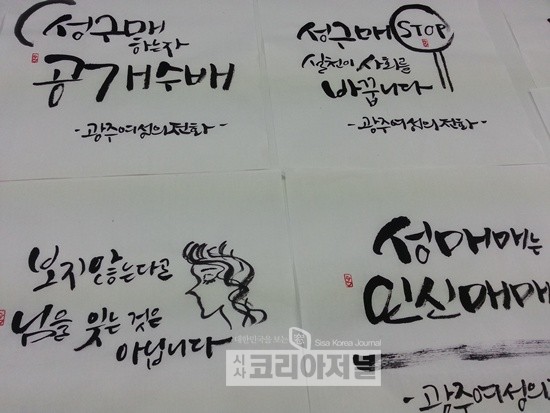 성구매
하는자
공개수배
-광주여성의전화-
성구매 STOP
실천이 사회를
바꿉니다
-광주여성의전화-
보지않는다고
님을 잊는 것은
아닙니다
성매매는
인신매매
-광주여성의
대한민국을 보는 눈
Sisa Korea Journal
시사 코리아저널